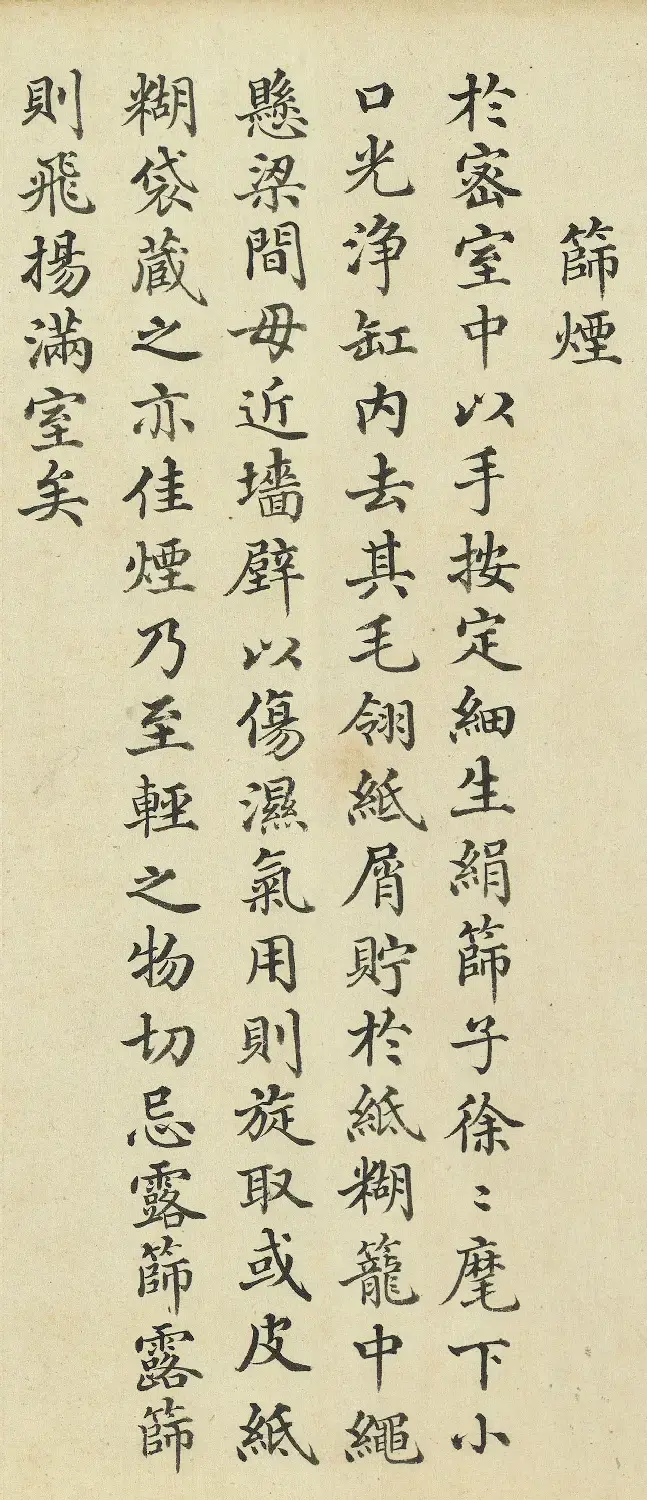 篩煙
於宻室中以手按定細生絹篩子徐〻麾下小
口光浄缸内去其毛翎紙屑貯於紙糊籠中繩
懸梁間毋近墻壁以傷濕氣用則旋取或皮紙
糊袋蔵之亦佳煙乃至輕之物切忌露篩露篩
則飛揚滿室矣